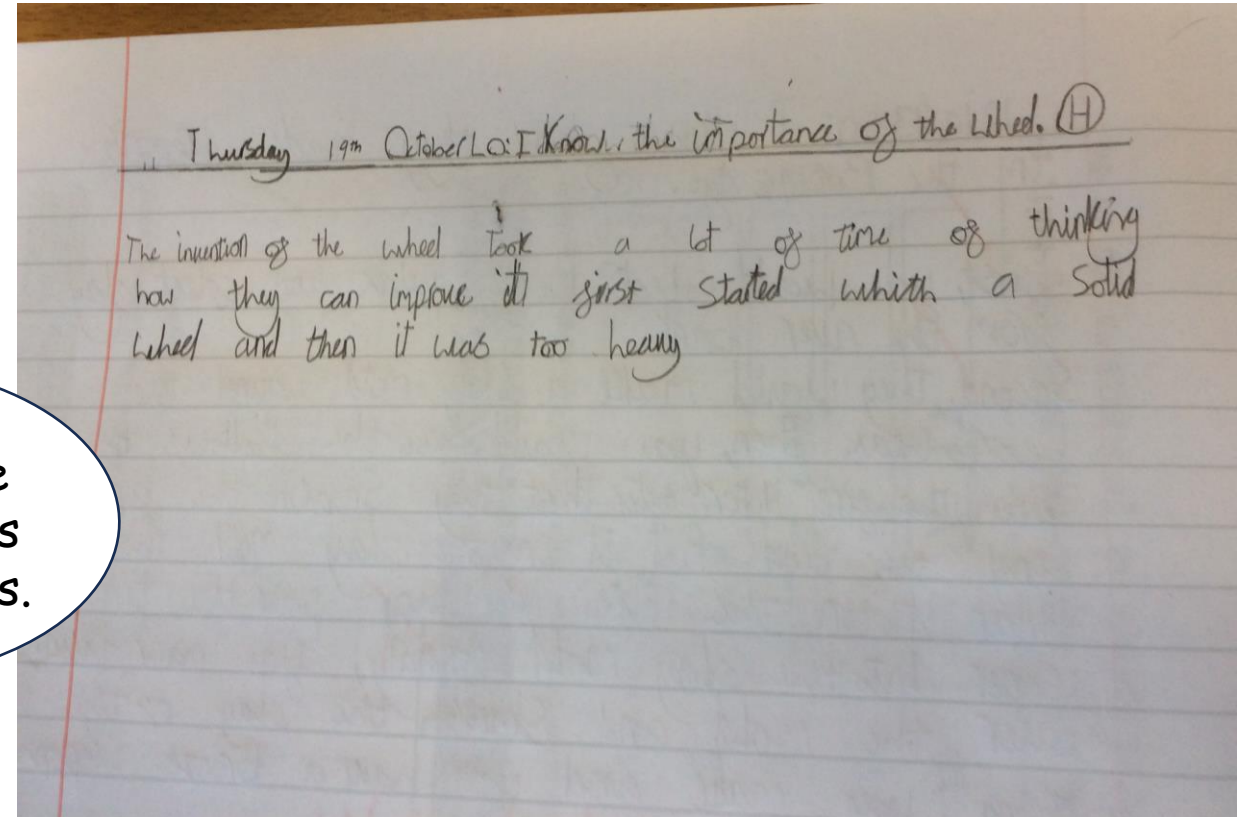 Thursday 19th October LO: I Know the importance of the wheel. (H)
The invention of the wheel Took a lot of time of thinking
how they can improve it first started whith a solid
wheel and then it was too heavy
s.